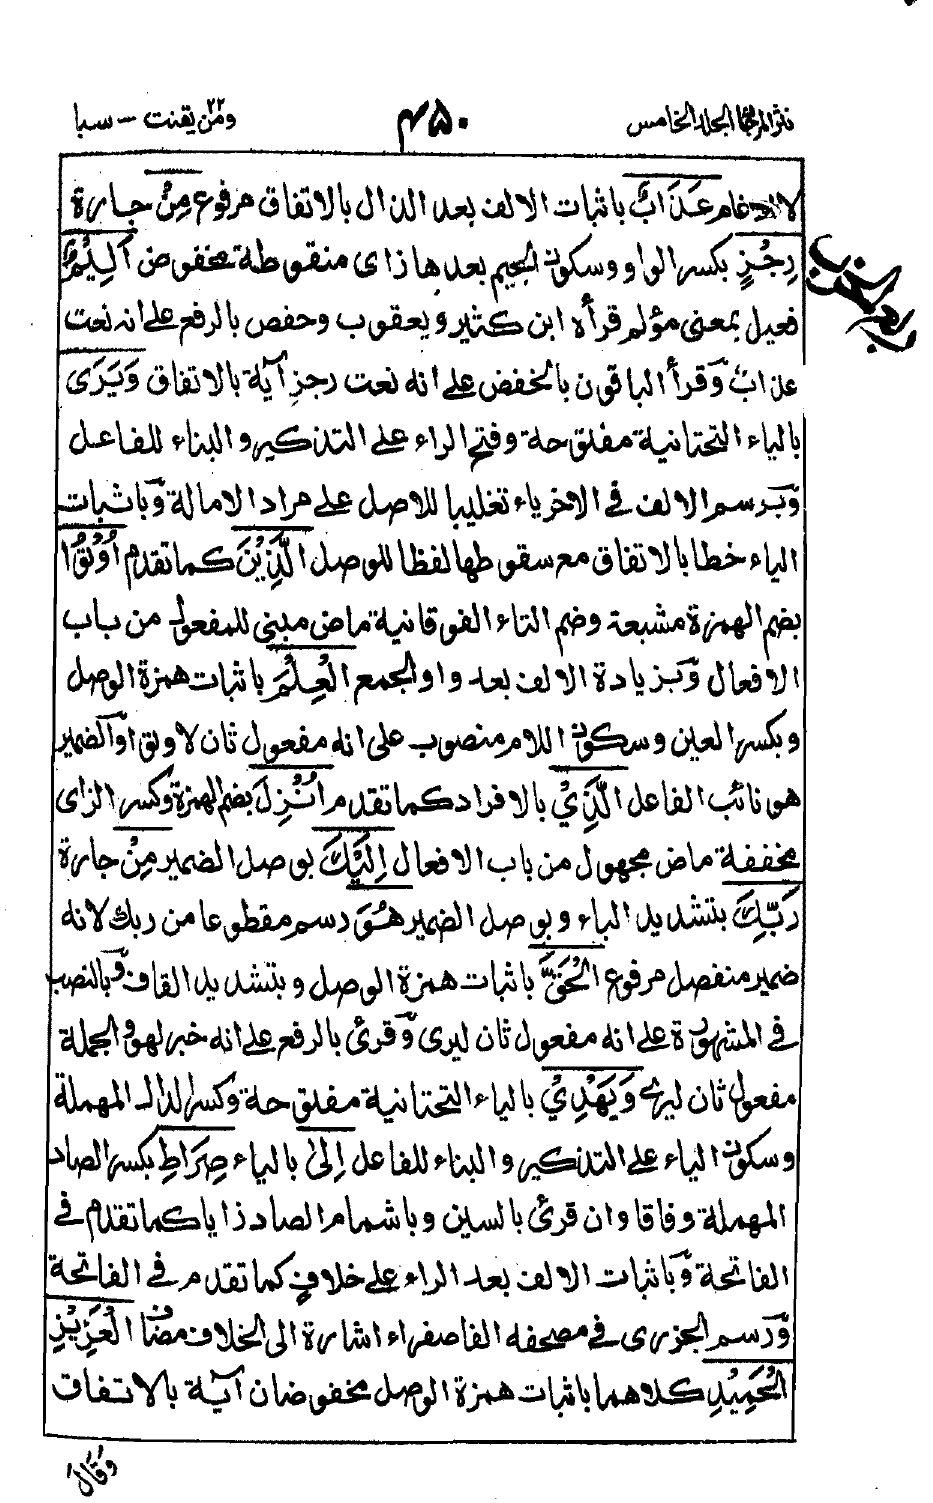 نثر المرجان الجلد الخامس
۴۵۰
ومن يقنت ۲۲ — سبا
عَذَابٌ باثبات الالف بعد الذال بالاتفاق مرفوع مِنْ جارة
رِجْزٍ بكسر الراء وسكون الجيم بعدها زاى منقوطة مخفوض اَلِيْمٌ
فعيل بمعنى مؤلم قرأه ابن كثير ويعقوب وحفص بالرفع على انه نعت
عذاب وقرأ الباقون بالخفض على انه نعت رجز آية بالاتفاق وَيَرَى
بالياء التحتانية مفتوحة وفتح الراء على التذكير والبناء للفاعل
وبرسم الالف فى الاخر ياء تغليبا للاصل على مراد الامالة وباثبات
الياء خطا بالاتفاق مع سقوطها لفظا للوصل الَّذِيْنَ كما تقدم اُوْتُوا
بضم الهمزة مشبعة وضم التاء الفوقانية ماض مبنى للمفعول من باب
الافعال وبزيادة الالف بعد واو الجمع الْعِلْمَ باثبات همزة الوصل
وبكسر العين وسكون اللام منصوب على انه مفعول ثان لاوتوا والضمير
هو نائب الفاعل الَّذِيْ بالافراد كما تقدم اُنْزِلَ بضم الهمزة وكسر الزاى
مخففة ماض مجهول من باب الافعال اِلَيْكَ بوصل الضمير مِنْ جارة
رَبِّكَ بتشديد الباء وبوصل الضمير هُوَ رسم مقطوعا من ربك لانه
ضمير منفصل مرفوع الْحَقَّ باثبات همزة الوصل وبتشديد القاف وبالنصب
فى المشهورة على انه مفعول ثان ليرى وقرئ بالرفع على انه خبر لهو والجملة
مفعول ثان ليرى وَيَهْدِيْ بالياء التحتانية مفتوحة وكسر الدال المهملة
وسكون الياء على التذكير والبناء للفاعل اِلٰى بالياء صِرَاطِ بكسر الصاد
المهملة وفاقا وان قرئ بالسين وباشمام الصاد زايا كما تقدم فى
الفاتحة وباثبات الالف بعد الراء على خلاف كما تقدم فى الفاتحة
ورسم الجزرى فى مصحفه الفا صفراء اشارة الى الخلاف مضاف الْعَزِيْزِ
الْحَمِيْدِ كلاهما باثبات همزة الوصل مخفوضان آية بالاتفاق
وَقَالَ